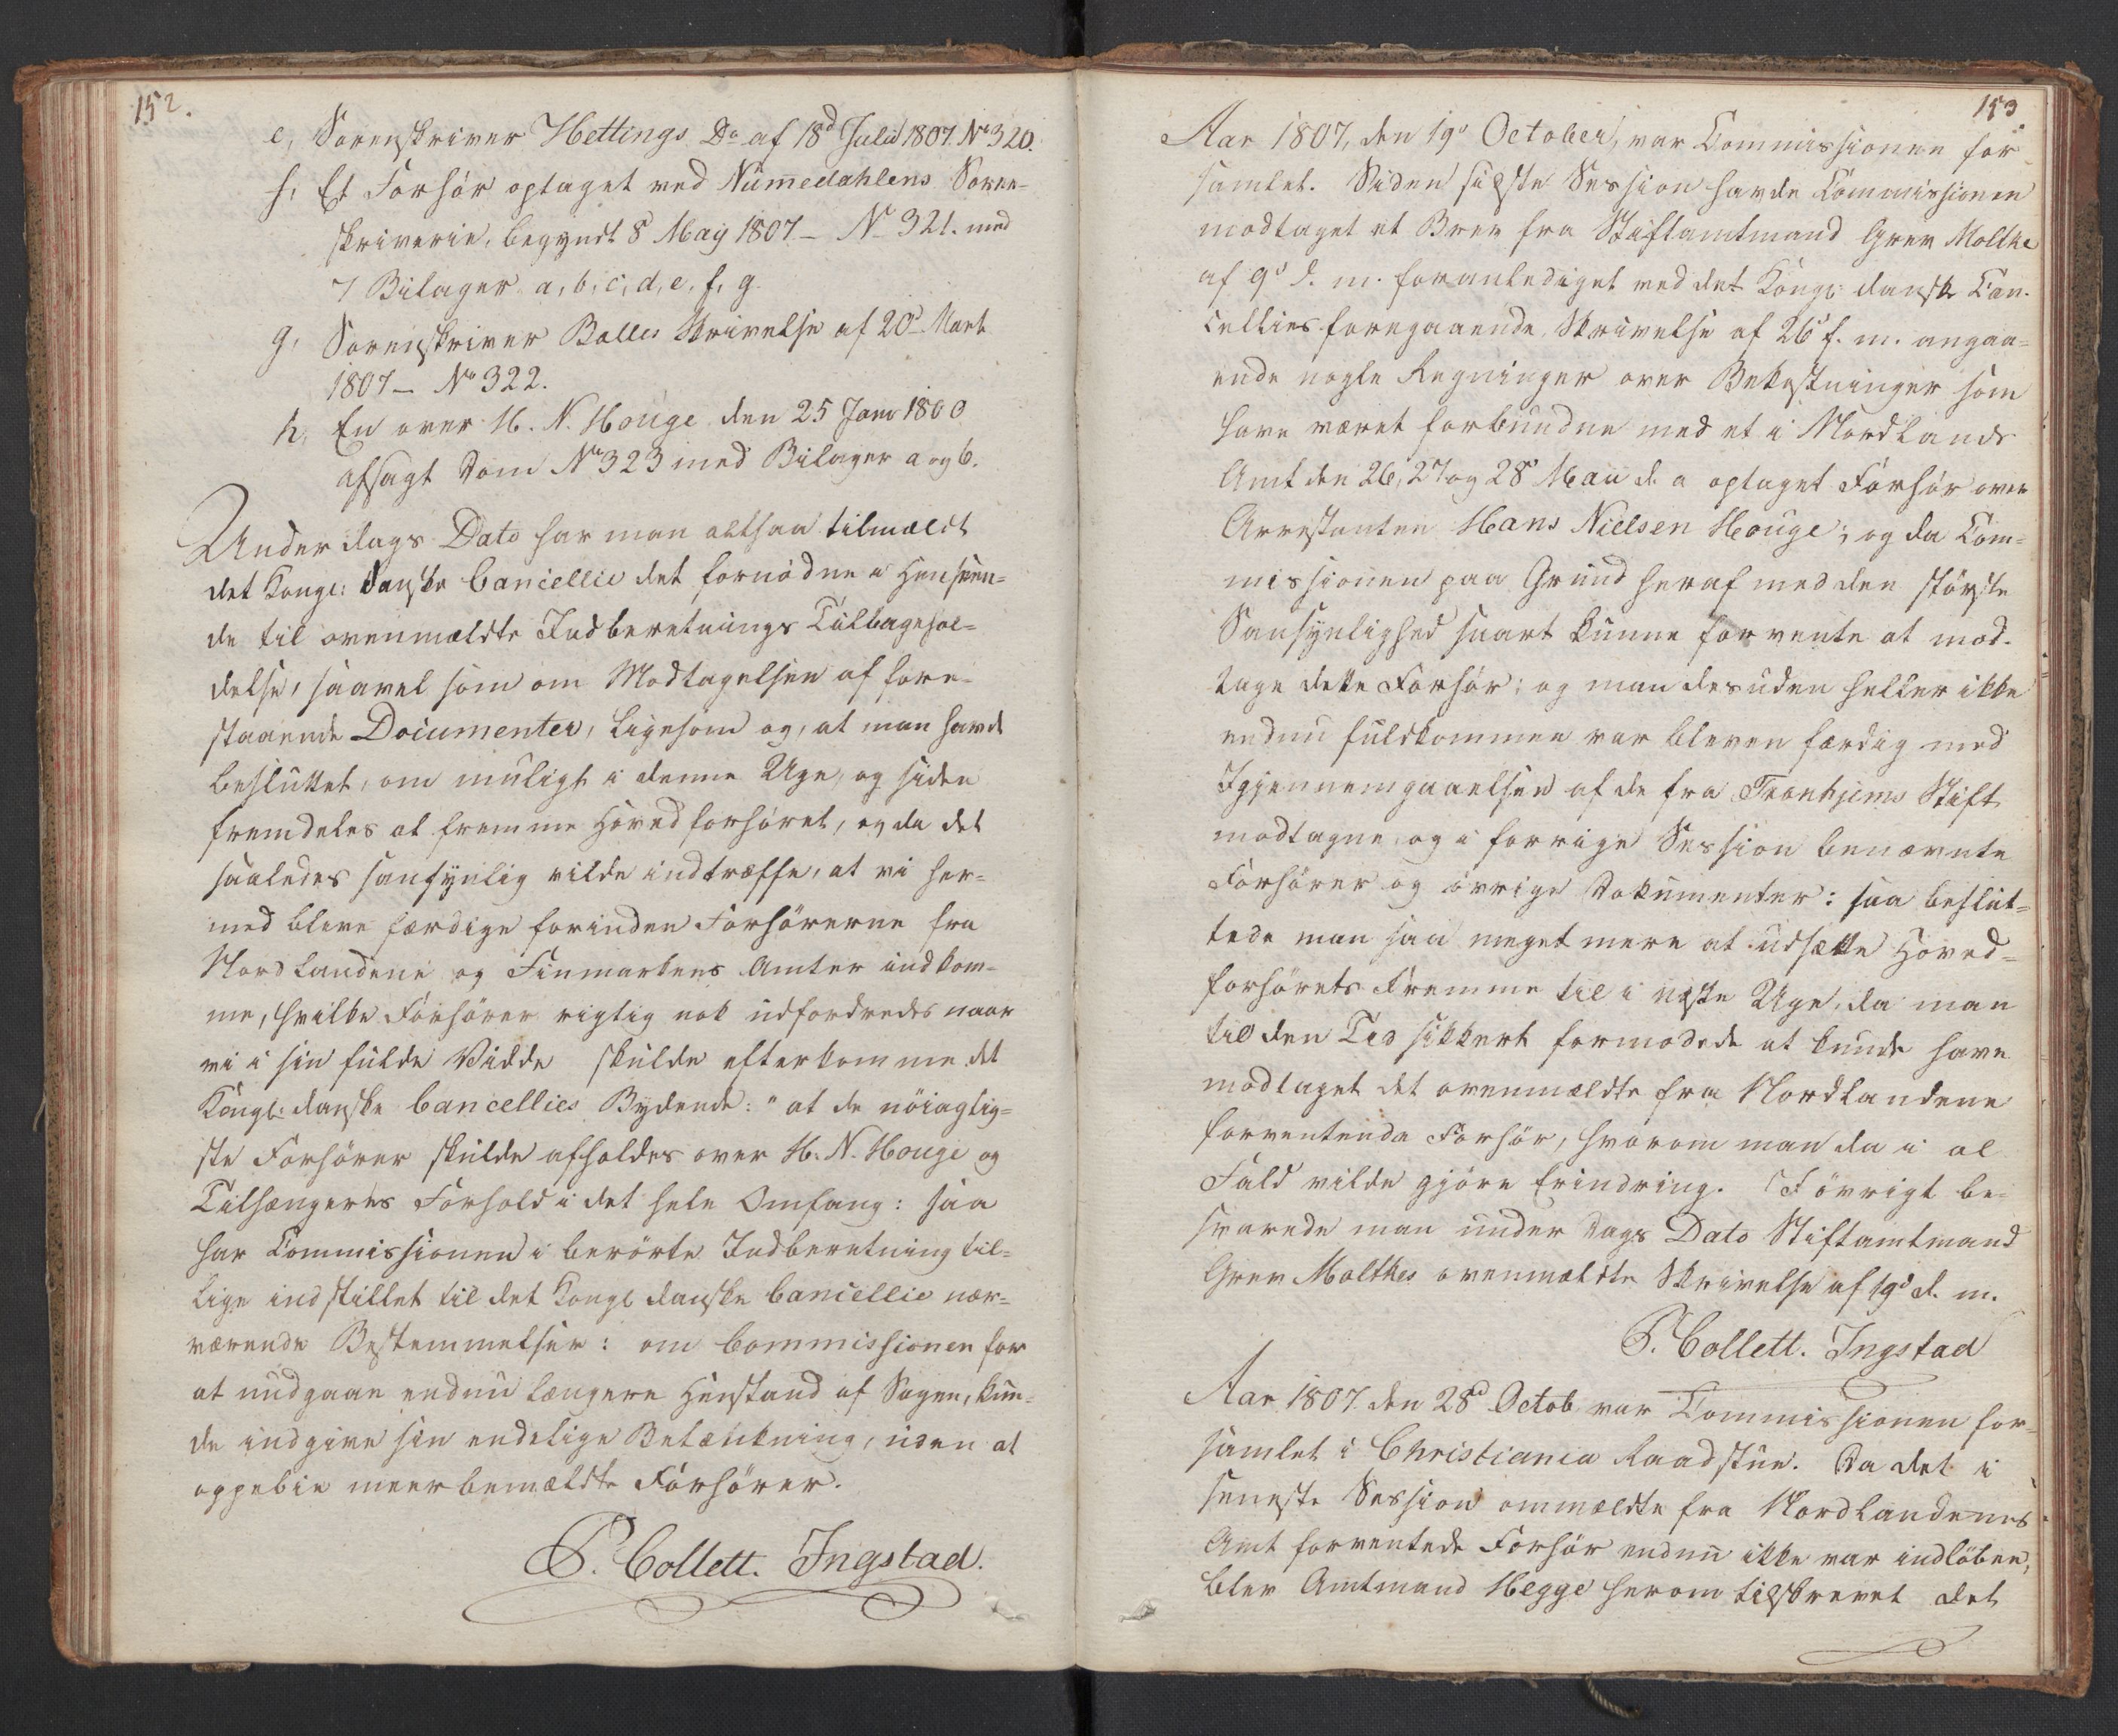 152.
e, Sorenskriver Hettings Do af 18d Julii 1807. No 320.
f, Et Forhör optaget ved Nummedahlens Soren-
skriverie, begyndt 8 May 1807 – No 321. med
7 Bilager a, b, c, d, e, f, g.
g, Sorenskriver Balles Skrivelse af 20d Mart
1807 – No 322.
h, En over H. N. Houge den 25 Janv 1800
afsagt Dom No 323 med Bilager a og b.
Under dags Dato har man altsaa tilmældt
det Kongl: danske Cancellie det fornödne i Henseen-
de til ovenmældte Indberetnings Tilbagehol-
delse, saavel som om Modtagelsen af fore-
staaende Documenter, ligesom og, at man havde
besluttet, om muligt i denne Uge, og siden
fremdeles at fremme Hovedforhöret, og da det
saaledes sansynlig vilde indtræffe, at vi her-
med bleve færdige forinden Forhörerne fra
Nordlandene og Finmarkens Amter indkom-
me, hvilke Forhörer rigtig nok udfordredes naar
vi i sin fulde Vidde skulde efterkomme det
Kongl: danske Cancellies Bydende: "at de nöiagtig-
ste Forhörer skulde afholdes over H. N. Houge og
Tilhængeres Forhold i det hele Omfang: saa
har Commissionen i berörte Indberetning til-
lige indstillet til det Kongl danske Cancellie nær-
værende Bestemmelser: om Commissionen for
at undgaae endnu længere Henstand af Sagen, kun-
de indgive sin endelige Betænkning, uden at
oppebie meerbemældte Forhörer.
P. Collett. Ingstad.
153
Aar 1807, den 19d October, var Commissionen for-
samlet. Siden sidste Session havde Commissionen
modtaget et Brev fra Stiftamtmand Grev Moltke
af 9d d. m. foranlediget ved det Kongl: danske Can-
cellies foregaaende Skrivelse af 26d f. m. angaa-
ende nogle Regninger over Bekostninger som
have været forbundne med et i Nordlands
Amt den 26, 27 og 28d Maii d. a optaget Forhör over
Arrestanten Hans Nielsen Houge; og da Com-
missionen paa Grund heraf med den störste
Sansynlighed snart kunne forvente at mod-
tage dette Forhör; og man desuden heller ikke
endnu fuldkommen var bleven færdig med
Igjennemgaaelsen af de fra Tronhjems Stift
modtagne, og i forrige Session benævnte
Forhörer og övrige Dokumenter: saa beslut-
tede man saa meget mere at udsætte Hoved-
forhörets Fremme til i næste Uge, da man
til den Tid sikkert formodede at kunde have
modtaget det ovenmældte fra Nordlandene
forventende Forhör, hvorom man da i al
Fald vilde gjöre Erindring. I övrigt be-
svarede man under Dags Dato Stiftamtmand
Grev Moltkes ovenmældte Skrivelse af 19d d. m.
P. Collett. Ingstad
Aar 1807 den 28d Octob var Commissionen for-
samlet i Christiania Raadstue. Da det i
seneste Session ommældte fra Nordlandenes
Amt forventede Forhör endnu ikke var indlöben,
blev Amtmand Hegge herom tilskrevet det